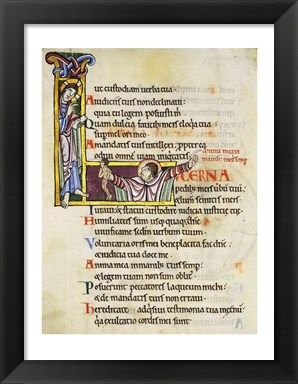 ut custodiam uerba tua
A iudiciis tuis non declinaui:
quia tu legem posuisti m
Quam dulcia faucib; meis eloq̃a tua:
sup mel ori meo
A mandatis tuis intellexi: ꝓpterea
odiui omnē uiam iniquitatis
anima mea in
manib; meis semꝑ
LUCERNA
pedib; meis uerbū tuū:
& lumen semitis meis
Iuraui & statui custodire iudicia iusticie tue
Humiliatus sum usquequaq; dñe
uiuifica me scdm uerbum tuum
Voluntaria oris mei beneplacita fac dñe:
& iudicia tua doce me
Anima mea in manib; tuis semꝑ:
& legem tuam non sum oblit'
Posuerunt peccatores laqueum michi:
& de mandatis tuis non erraui
Hereditate adq̃siui testimonia tua in et̃nū:
q̃a exultatio cordis mei sunt